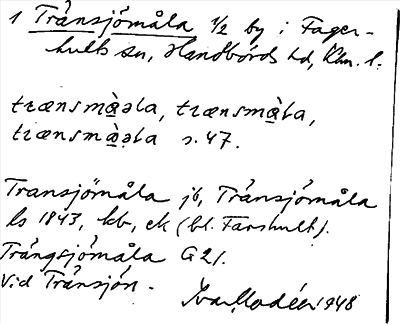 1 Tránsjömåla 1/2 by i Fager-
hults sn, Handbörds hd, Klm. l.
trænsmà̱əla, trænsmà̱la,
trænsmà̱əla s. 47.
Transjömåla jb, Tránsjömåla
ks 1843, kb, ek (bl. Farshult).
Trångsjömåla G 21.
Vid Tränsjön.
Ivar Modéer 1948